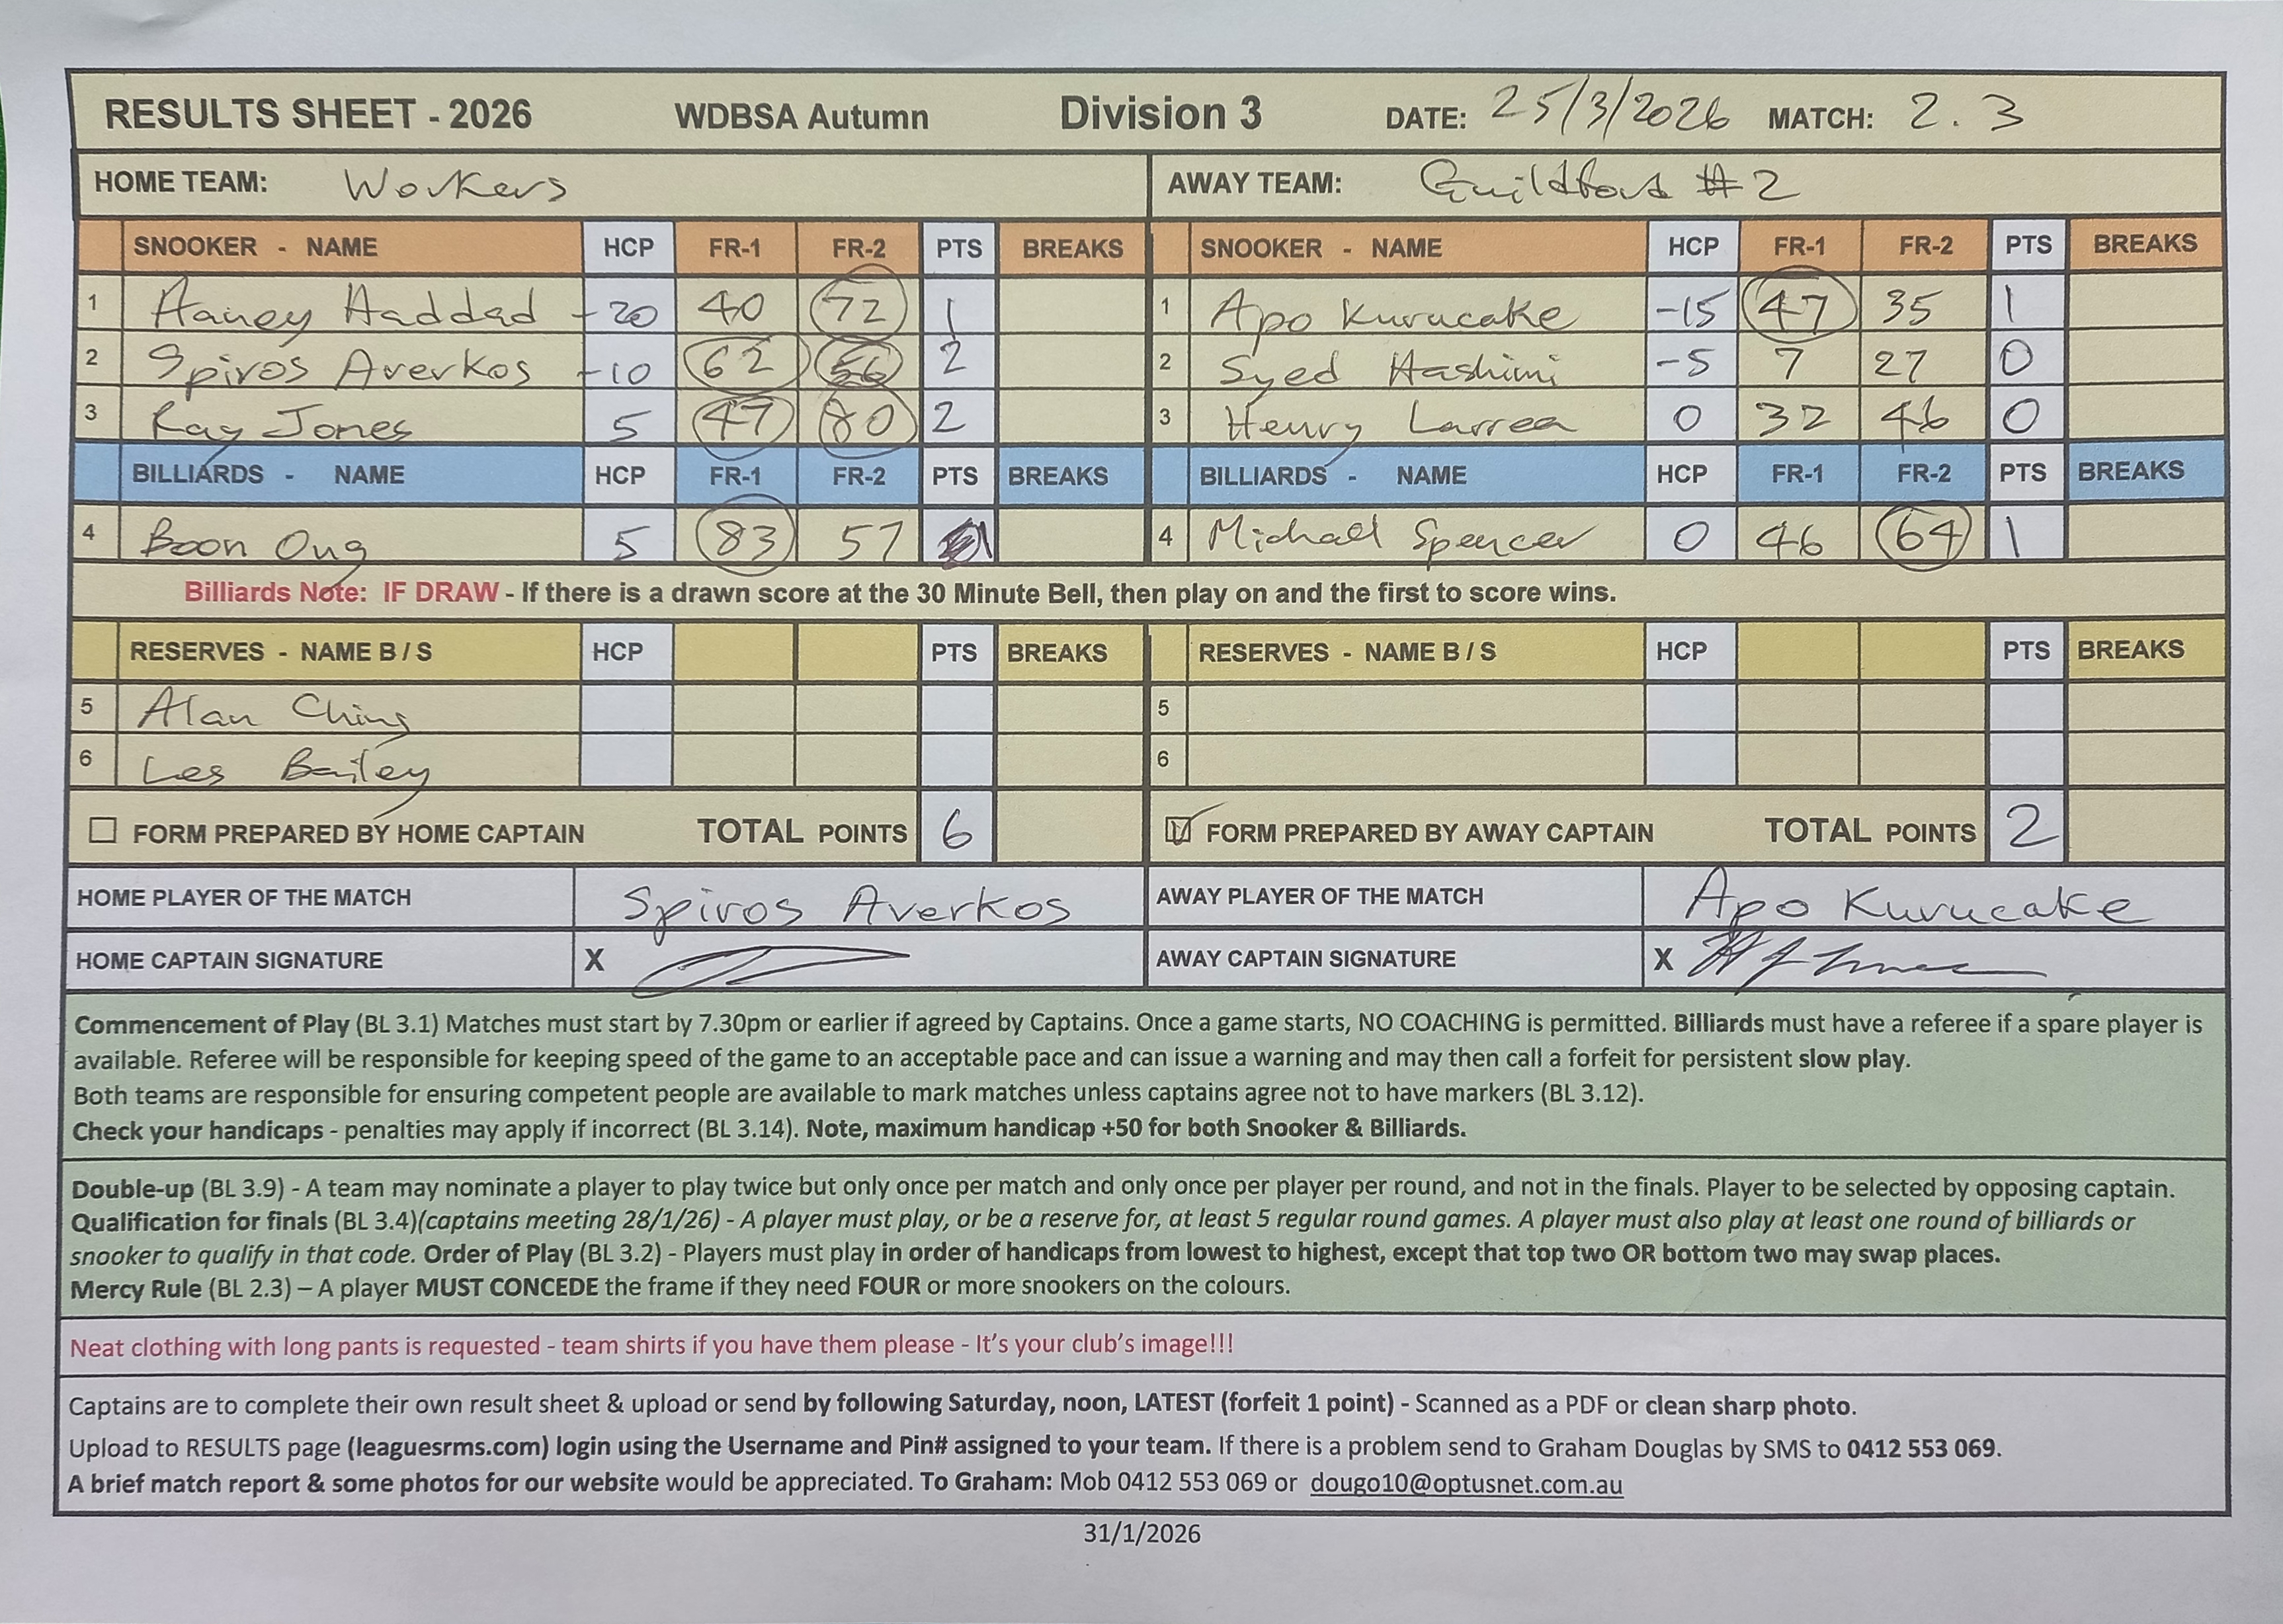 RESULTS SHEET - 2026 WDBSA Autumn Division 3 DATE: 25/3/2026 MATCH: 2.3
HOME TEAM: Workers AWAY TEAM: Guildford #2
SNOOKER - NAME HCP FR-1 FR-2 PTS BREAKS SNOOKER - NAME HCP FR-1 FR-2 PTS BREAKS
1 Haney Haddad -20 40 72 1 1 Apo Kurucake -15 47 35 1
2 Spiros Averkos -10 62 56 2 2 Syed Hashimi -5 7 27 0
3 Ray Jones 5 47 80 2 3 Henry Larrea 0 32 46 0
BILLIARDS - NAME HCP FR-1 FR-2 PTS BREAKS BILLIARDS - NAME HCP FR-1 FR-2 PTS BREAKS
4 Boon Ong 5 83 57 1 4 Michael Spencer 0 46 64 1
Billiards Note: IF DRAW - If there is a drawn score at the 30 Minute Bell, then play on and the first to score wins.
RESERVES - NAME B / S HCP PTS BREAKS RESERVES - NAME B / S HCP PTS BREAKS
5 Alan Ching 5
6 Les Bailey 6
FORM PREPARED BY HOME CAPTAIN TOTAL POINTS 6 FORM PREPARED BY AWAY CAPTAIN TOTAL POINTS 2
HOME PLAYER OF THE MATCH Spiros Averkos AWAY PLAYER OF THE MATCH Apo Kurucake
HOME CAPTAIN SIGNATURE X AWAY CAPTAIN SIGNATURE X
Commencement of Play (BL 3.1) Matches must start by 7.30pm or earlier if agreed by Captains. Once a game starts, NO COACHING is permitted. Billiards must have a referee if a spare player is
available. Referee will be responsible for keeping speed of the game to an acceptable pace and can issue a warning and may then call a forfeit for persistent slow play.
Both teams are responsible for ensuring competent people are available to mark matches unless captains agree not to have markers (BL 3.12).
Check your handicaps - penalties may apply if incorrect (BL 3.14). Note, maximum handicap +50 for both Snooker & Billiards.
Double-up (BL 3.9) - A team may nominate a player to play twice but only once per match and only once per player per round, and not in the finals. Player to be selected by opposing captain.
Qualification for finals (BL 3.4)(captains meeting 28/1/26) - A player must play, or be a reserve for, at least 5 regular round games. A player must also play at least one round of billiards or
snooker to qualify in that code. Order of Play (BL 3.2) - Players must play in order of handicaps from lowest to highest, except that top two OR bottom two may swap places.
Mercy Rule (BL 2.3) – A player MUST CONCEDE the frame if they need FOUR or more snookers on the colours.
Neat clothing with long pants is requested - team shirts if you have them please - It's your club's image!!!
Captains are to complete their own result sheet & upload or send by following Saturday, noon, LATEST (forfeit 1 point) - Scanned as a PDF or clean sharp photo.
Upload to RESULTS page (leaguesrms.com) login using the Username and Pin# assigned to your team. If there is a problem send to Graham Douglas by SMS to 0412 553 069.
A brief match report & some photos for our website would be appreciated. To Graham: Mob 0412 553 069 or dougo10@optusnet.com.au
31/1/2026